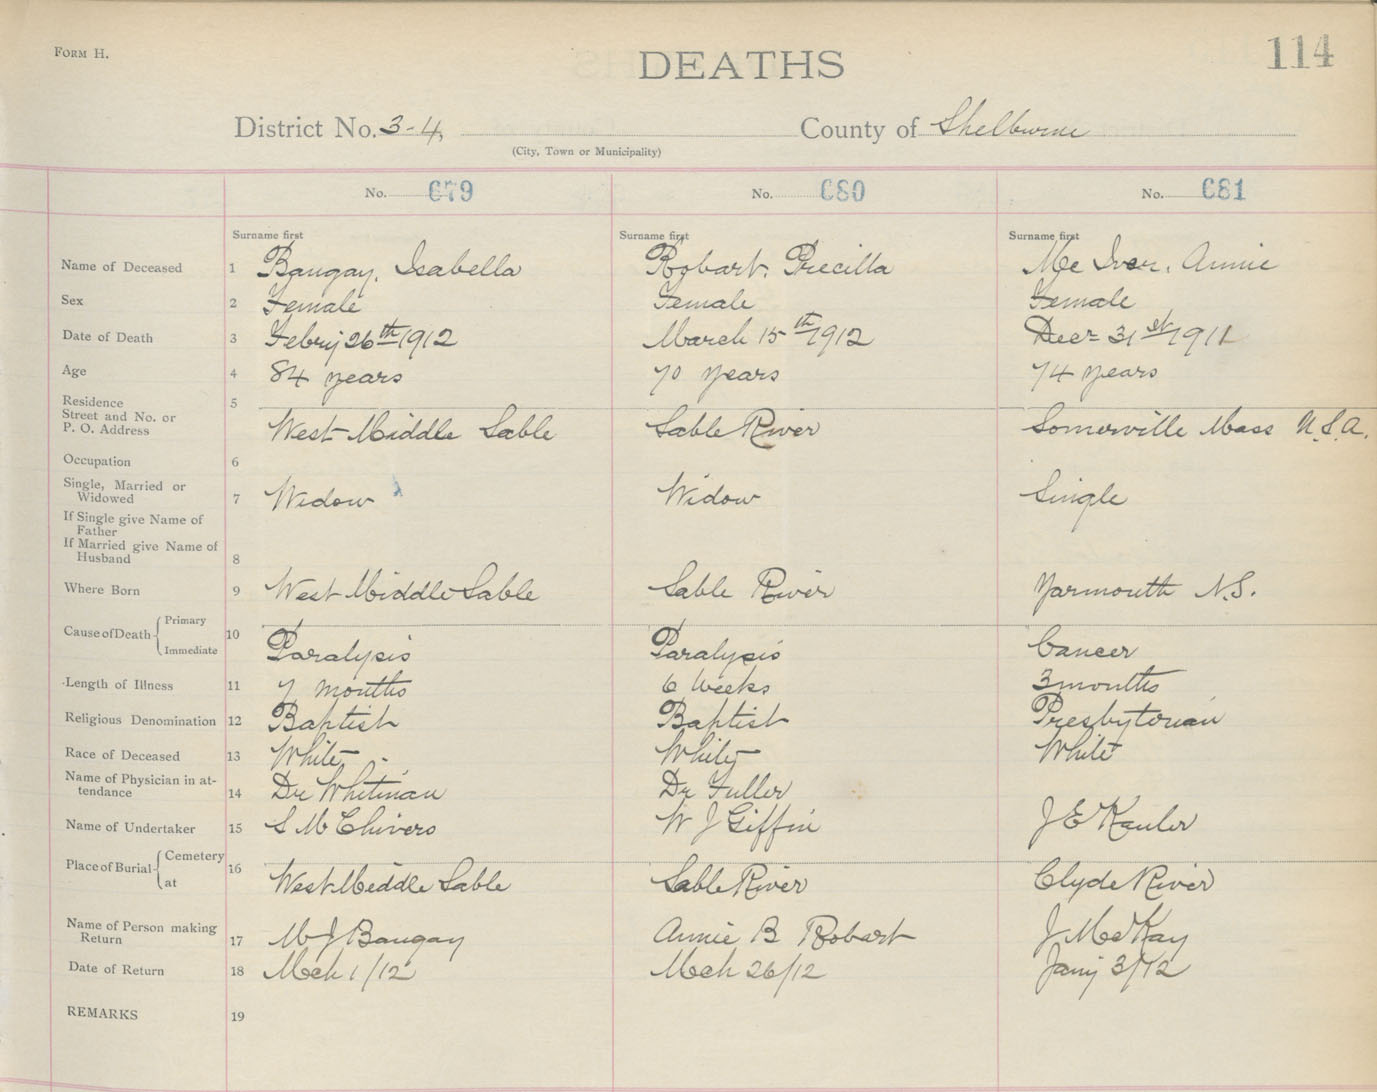 FORM H.
DEATHS
114
District No. 3-4, County of Shelburne
(City, Town or Municipality)
No. 679 No. 680 No. 681
Surname first Surname first Surname first
Name of Deceased 1 Bangay, Isabella Robart, Precilla Mc Iver, Annie
Sex 2 Female Female Female
Date of Death 3 Febry 26th 1912 March 15th 1912 Decr 31st 1911
Age 4 84 years 70 years 74 years
Residence 5
Street and No. or
P. O. Address West Middle Sable Sable River Somerville Mass U.S.A.
Occupation 6
Single, Married or
Widowed 7 Widow Widow Single
If Single give Name of
Father
If Married give Name of
Husband 8
Where Born 9 West Middle Sable Sable River Yarmouth N.S.
Cause of Death Primary 10
Immediate Paralysis Paralysis Cancer
Length of Illness 11 7 months 6 weeks 3 months
Religious Denomination 12 Baptist Baptist Presbyterian
Race of Deceased 13 White White White
Name of Physician in at-
tendance 14 Dr Whitman Dr Fuller
Name of Undertaker 15 S M Chivers W J Giffin J E
Place of Burial Cemetery 16
at West Middle Sable Sable River Clyde River
Name of Person making
Return 17 M J Bangay Annie B Robart J McKay
Date of Return 18 Mch 1/12 Mch 26/12 Jany 3/12
REMARKS 19